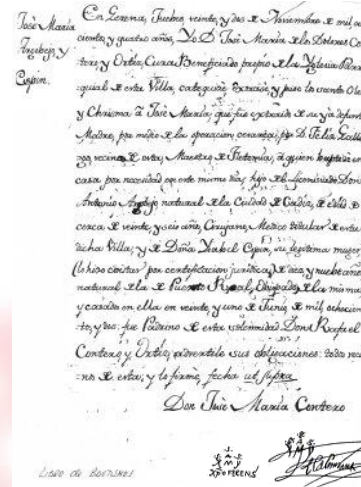 José Maria
Argebejo y
Espin.
En Gerena, Jueves veinte, y dos de Noviembre de mil ocho
cientos, y quatro años, Yo D. José María de los Dolores Con
tero y Ortiz, Cura Beneficiado propio de la Yglesia Parro
quial de esta Villa, categuizé Exorcisé, y puse los santos Oleo
y Chrisma à José María, que fue extraido de su ya difunta
Madre, por medio de la operacion cesarea, por D. Felix Gall
vecino de esta, Maestro de Flebotomia, à quien bautizó en
casa por necesidad en este mismo dia; hijo de Licenciado Don
Antonio natural de la Ciudad de Cadiz, de edad de
cerca de veinte, y seis años, Cirujano Medico titular de esta
dicha Villa; y de Doña Ysabel Espin, su legitima muger
(lo hizo constar por certificacion juridica) de diez, y nuebe años
natural de la de Puerto Real, Obispado de la misma
y casados en ella en veinte, y uno de Junio de mil, ochocien
tos, y dos: fue Padrino de esta solemnidad Don Rafael
Contero, y Ortiz, advertile sus obligaciones: todos veci
nos de esta, y lo firmé, fecha ut supra
Don José María Contero
XPOFERENS
LIBRO de BAUTISMOS